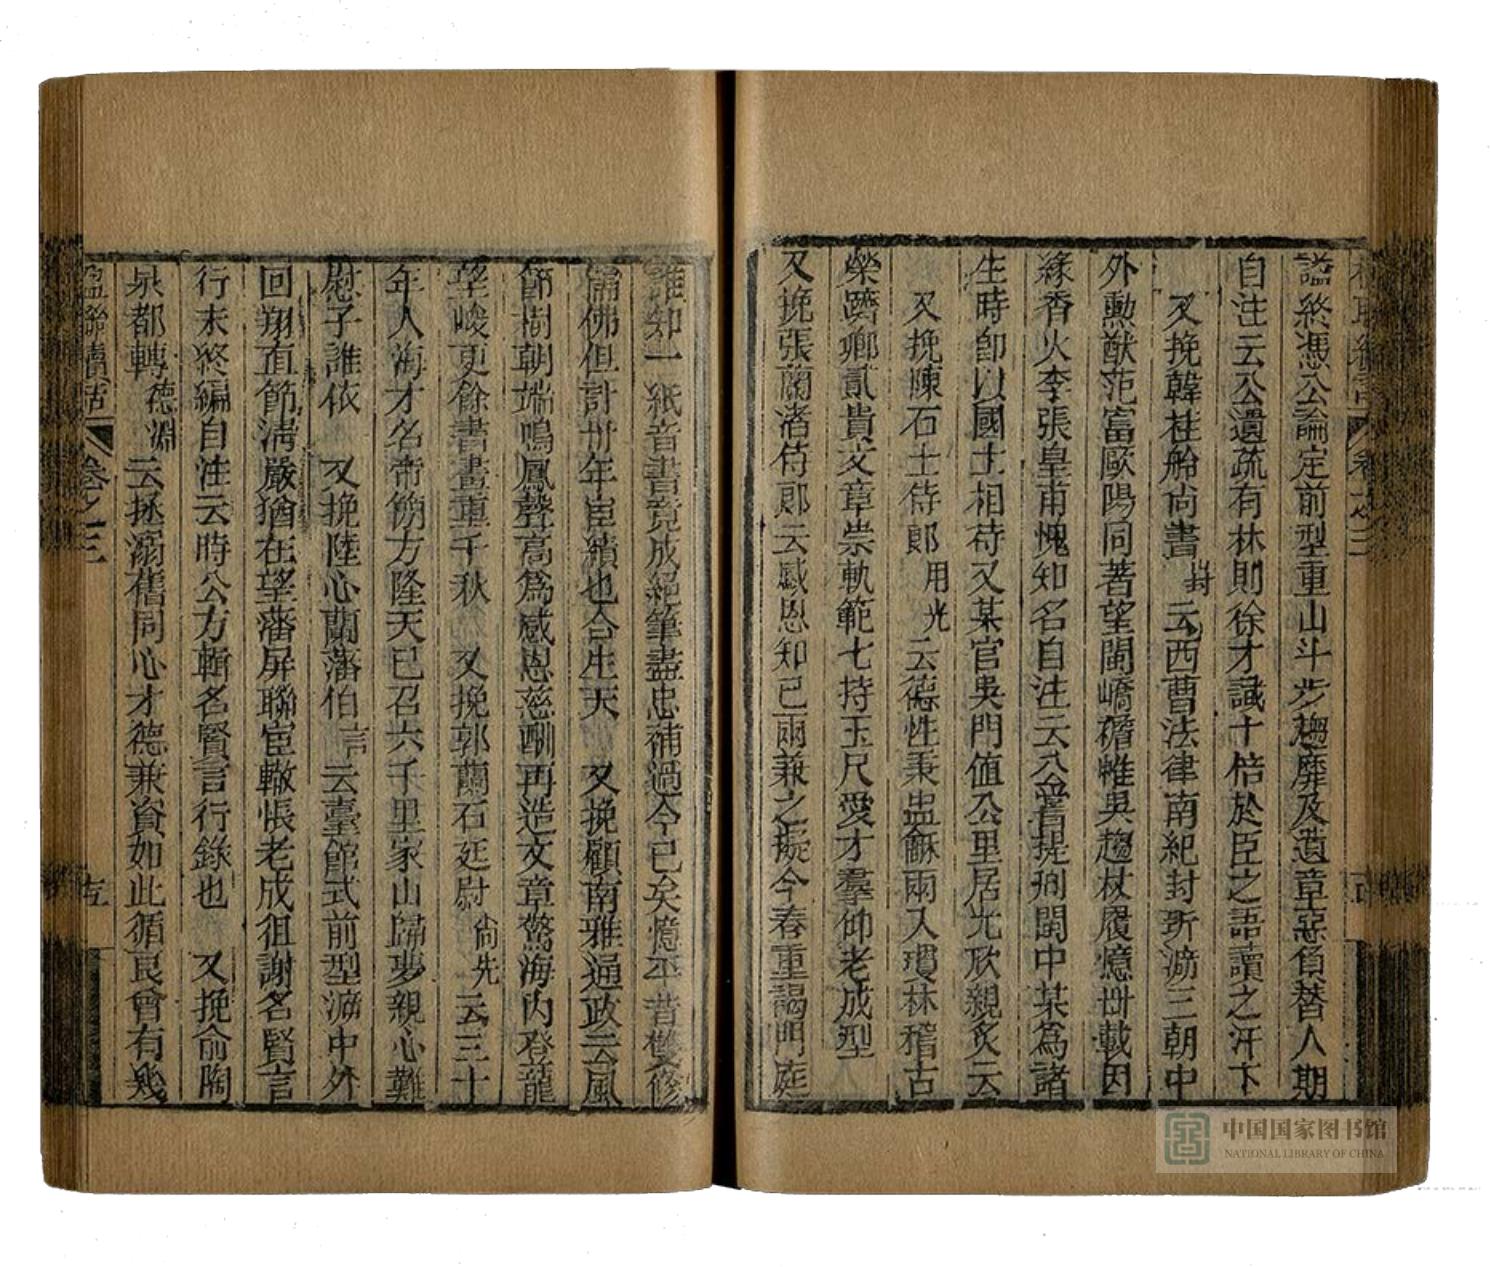 謚終憑公論定前型重山斗步趨靡及遺章惡負替人期
自注云公遺疏有林則徐才識十倍於臣之語讀之汗下
又挽韓桂舲尚書 封 云西曹法律南紀封圻游三朝中
外勳猷范富歐陽同著望閩嶠循帷吳趨杖履憶卅載因
緣香火李張皇甫愧知名自注云公舊提刑閩中某為諸
生時卽以國士相待又某官吳門值公里居尤欣親炙云
又挽陳石士侍郎 用光 云德性秉盅龢兩入瓊林稽古
榮躋卿貳貴文章崇軌範七持玉尺愛才羣仰老成型
又挽張蘭渚侍郎云感恩知己兩兼之擬今春重謁門庭
誰知一紙音書竟成絕筆盡忠補過今已矣憶平昔雙修
儒佛但計卅年宦績也合生天 又挽顧南雅通政云風
節樹朝端鳴鳳聲高為感恩慈酬再造文章驚海內登龍
望峻更餘書畫重千秋 又挽郭蘭石廷尉 尚先 云三十
年人海才名帝餝方隆天已召六千里家山歸夢親心難
慰子誰依 又挽陸心蘭藩伯 言 云臺館式前型游中外
回翔直節淸嚴猶在望藩屏聯宦轍悵老成徂謝名賢言
行未終編自注云時公方輯名賢言行錄也 又挽俞陶
泉都轉 德淵 云拯溺舊同心才德兼資如此循良曾有幾
楹聯續話 卷之三
中国国家图书馆
NATIONAL LIBRARY OF CHINA